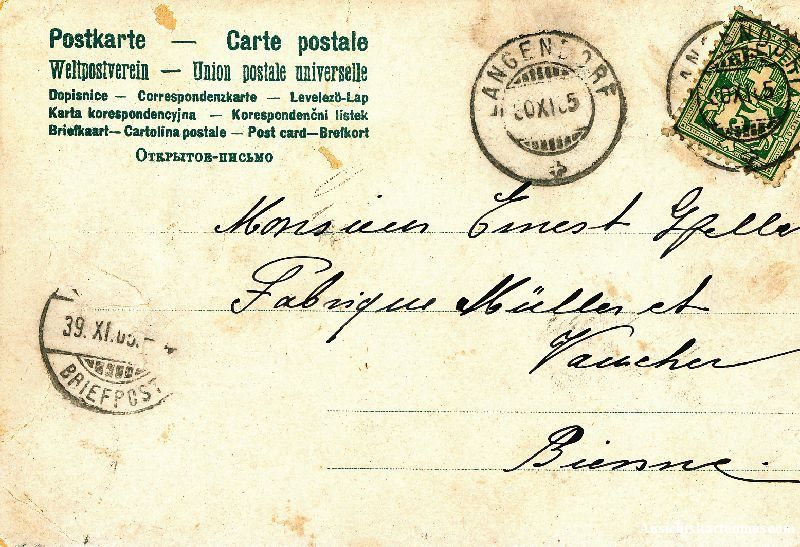 Postkarte — Carte postale
Weltpostverein — Union postale universelle
Dopisnice — Correspondenzkarte — Levelező-Lap
Karta korespondencyjna — Korespondenční listek
Briefkaart — Cartolina postale — Post card — Brefkort
Открытов-письмо
LANGENDORF
Monsieur Ernest Gfeller
Fabrique Müller et
Vaucher
Bienne.
39. XI. 05.
BRIEFPOST